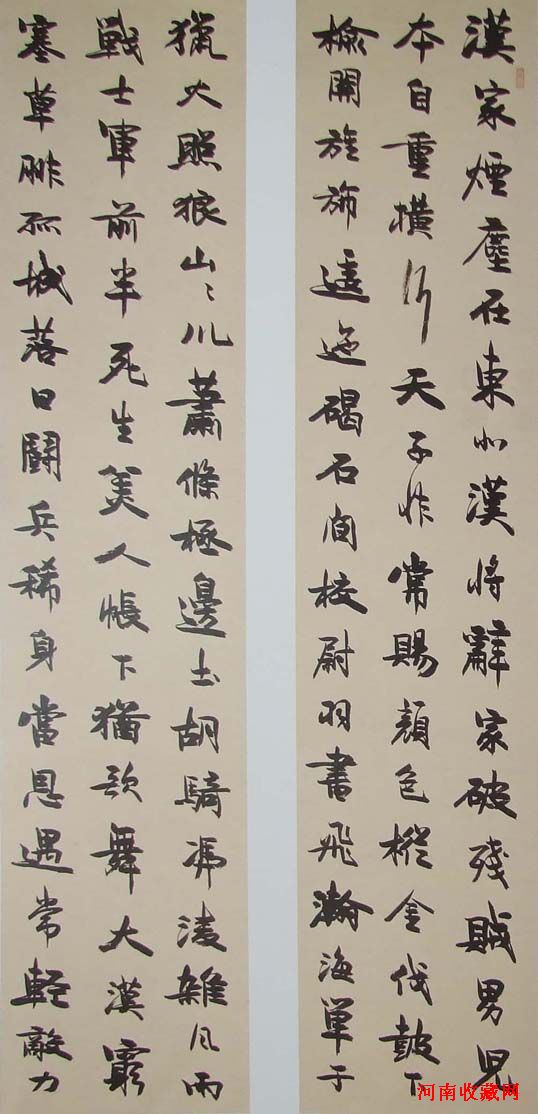 漢家煙塵在東北漢將辭家破殘賊男兒
本自重橫行天子非常賜顏色摐金伐鼓下
榆關旌旆逶迤碣石間校尉羽書飛瀚海單于
獵火照狼山々川蕭條極邊土胡騎馮淩雜風雨
戰士軍前半死生美人帳下猶歌舞大漠窮
塞草腓孤城落日鬪兵稀身當恩遇常輕敵力
河南收藏网